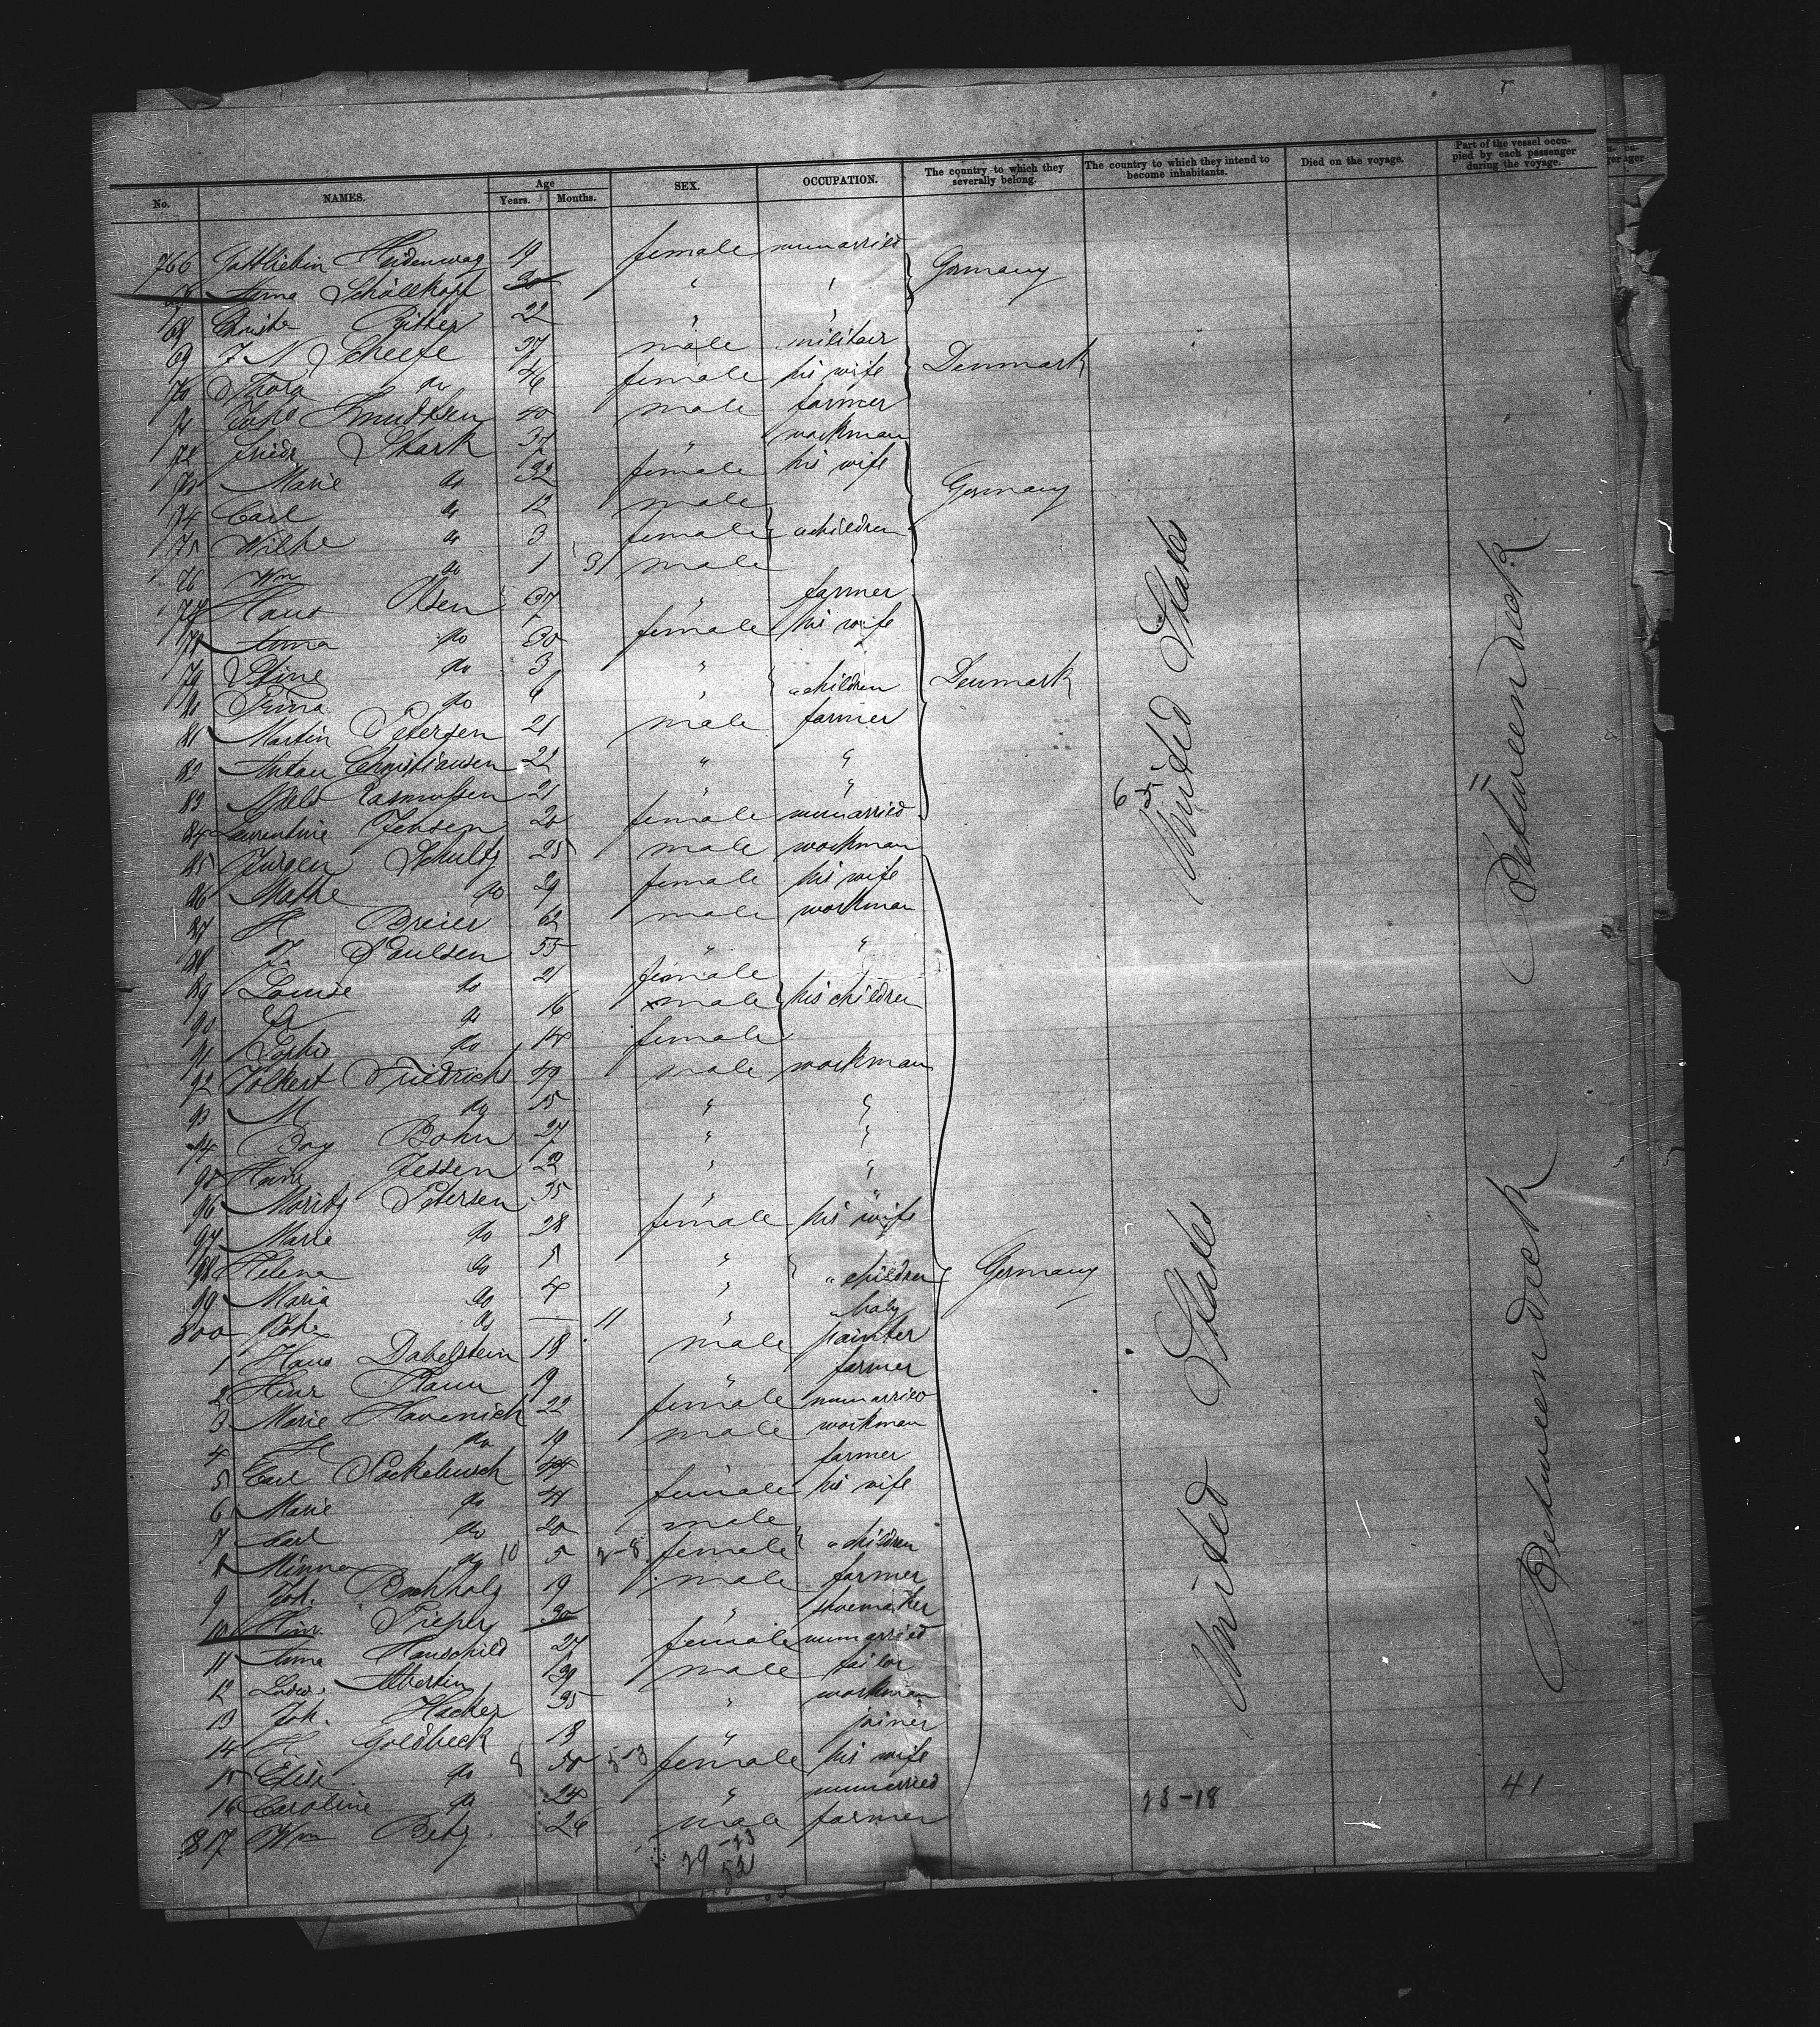 No. NAMES. Age Years. Months. SEX. OCCUPATION. The country to which they severally belong. The country to which they intend to become inhabitants. Died on the voyage. Part of the vessel occupied by each passenger during the voyage.
766 Gottliebin Heidenwag 19 female unmarried
Anna Schällkopf 30 " " Germany
68 Christn Ritter 22 " "
69 J N Scheefe 37 male militair
70 Thora do 46 female his wife Denmark
71 Johs Knudsen 40 male farmer
72 Friedr Stark 37 " workman
73 Marie do 32 female his wife
74 Carl do 12 male Germany
75 Wilhe do 3 female " children
76 Wm do 1 3 male
77 Hans Olsen 37 " farmer
Anna do 30 female his wife
79 Stine do 3 "
80 Trina do 6 " " children Denmark
81 Martin Petersen 21 male farmer
82 Anton Christiansen 22 " "
83 Niels Rasmussen 21 " "
84 Laurentine Jensen 20 female unmarried
85 Jürgen Schultz 25 male workman
86 Mathe do 29 female his wife
87 H Breier 62 male workman
88 Paulsen 55 " "
89 Louise do 21 female
90 do 16 male his children
91 Sophie do 14 female
92 Volkert Friedrichs 49 male workman
93 M do 15 " "
94 Boy Bohn 27 " "
95 Heinr Jessen 22 " "
96 Moritz Petersen 35 " "
97 Marie do 28 female his wife
98 Helena do 5 "
99 Maria do 4 " " children Germany
800 Johe do — 11 " " baby
1 Hans Dabelstein 18 male painter
2 Hinr Ramm 19 " farmer
3 Marie Havenich 22 female unmarried
4 H do 19 male workman
5 Carl Sackebusch 44 farmer
6 Marie do 41 female his wife
7 Carl do 20 male
8 Minna do 10 5 2-8 female " children
9 Joh. Buchholz 19 male farmer
10 Hinr Pieper 30 " shoemaker
11 Anna Hauschild 27 female unmarried
12 Ludw. Albertin 39 male tailor
13 Joh. Hacker 35 " workman
14 H Goldbeck 18 " joiner
15 Elise do 8 50 5-3 female his wife
16 Caroline do 24 " unmarried
817 Wm Betz 26 male farmer
United States
Between deck
United States
Between deck
6
11
23-18
41
29-23
52